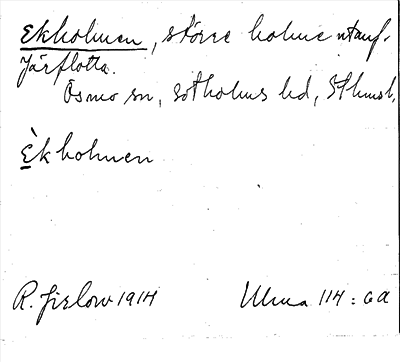 Ekholmen, större holme utanf.
Järflotta.
Ösmo sn, Sotholms hd, Sthms l.
Èkholmen
R. Jirlow 1914 Ulma 114:6a